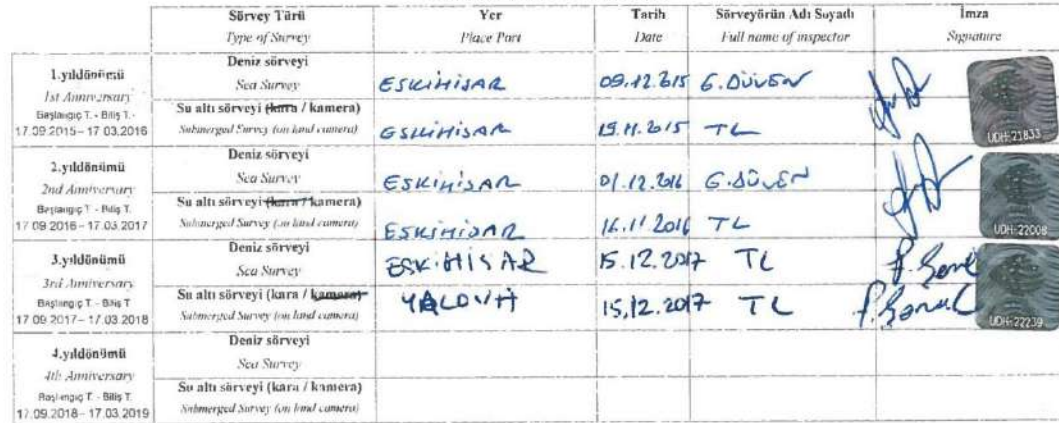 Sörvey Türü Yer Tarih Sörveyörün Adı Soyadı İmza
Type of Survey Place Port Date Full name of inspector Signature
1.yıldönümü
1st Anniversary
Başlangıç T. - Bitiş T.
17.09.2015 – 17.03.2016
Deniz sörveyi
Sea Survey
ESKİHİSAR 09.12.2015 G.DÜVEN
Su altı sörveyi (kara / kamera)
Submerged Survey (on land camera)
ESKİHİSAR 19.11.2015 TL
UDH-21833
2.yıldönümü
2nd Anniversary
Başlangıç T. - Bitiş T.
17.09.2016 – 17.03.2017
Deniz sörveyi
Sea Survey
ESKİHİSAR 01.12.2016 G.DÜVEN
Su altı sörveyi (kara / kamera)
Submerged Survey (on land camera)
ESKİHİSAR 16.11.2016 TL
UDH-22008
3.yıldönümü
3rd Anniversary
Başlangıç T. - Bitiş T
17.09.2017 – 17.03.2018
Deniz sörveyi
Sea Survey
ESKİHİSAR 15.12.2017 TL
Su altı sörveyi (kara / kamera)
Submerged Survey (on land camera)
YALOVA 15.12.2017 TL
UDH-22239
4.yıldönümü
4th Anniversary
Başlangıç T. - Bitiş T.
17.09.2018 – 17.03.2019
Deniz sörveyi
Sea Survey
Su altı sörveyi (kara / kamera)
Submerged Survey (on land camera)